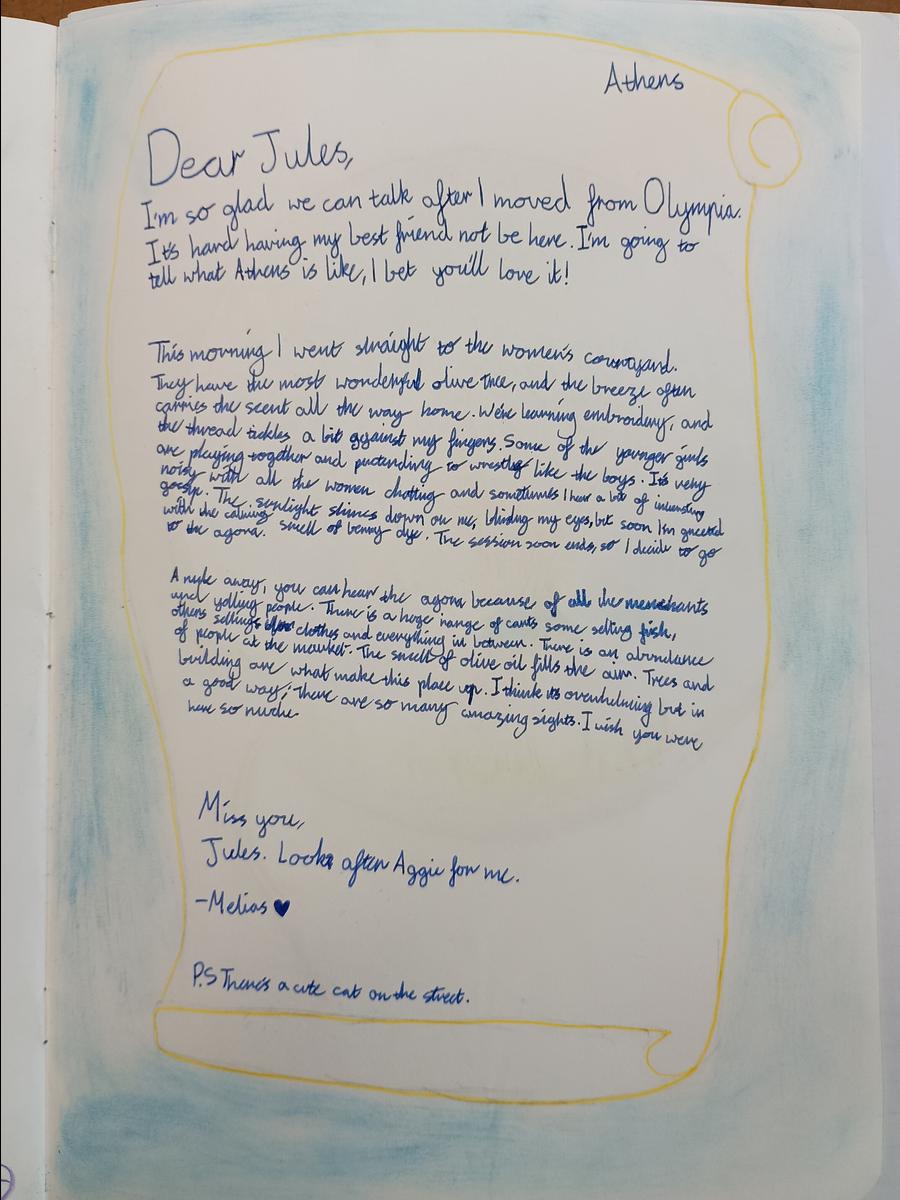 Athens
Dear Jules,
I'm so glad we can talk after I moved from Olympia.
It's hard having my best friend not be here. I'm going to
tell what Athens is like, I bet you'll love it!
This morning I went straight to the women's courtyard.
They have the most wonderful olive tree, and the breeze often
carries the scent all the way home. We're learning embroidery, and
the thread tickles a bit against my fingers. Some of the younger girls
are playing together and pretending to wrestle like the boys. It's very
noisy with all the women chatting and sometimes I hear a bit of interesting
gossip. The sunlight shines down on me, blinding my eyes, but soon I'm greeted
with the calming smell of berry dye. The session soon ends, so I decide to go
to the agora.
A mile away, you can hear the agora because of all the merchants
and yelling people. There is a huge range of carts some selling fish,
others selling clothes and everything in between. There is an abundance
of people at the market. The smell of olive oil fills the air. Trees and
building are what make this place up. I think its overwhelming but in
a good way; There are so many amazing sights. I wish you were
here so much.
Miss you,
Jules. Look after Aggie for me.
-Melias ♥
P.S There's a cute cat on the street.